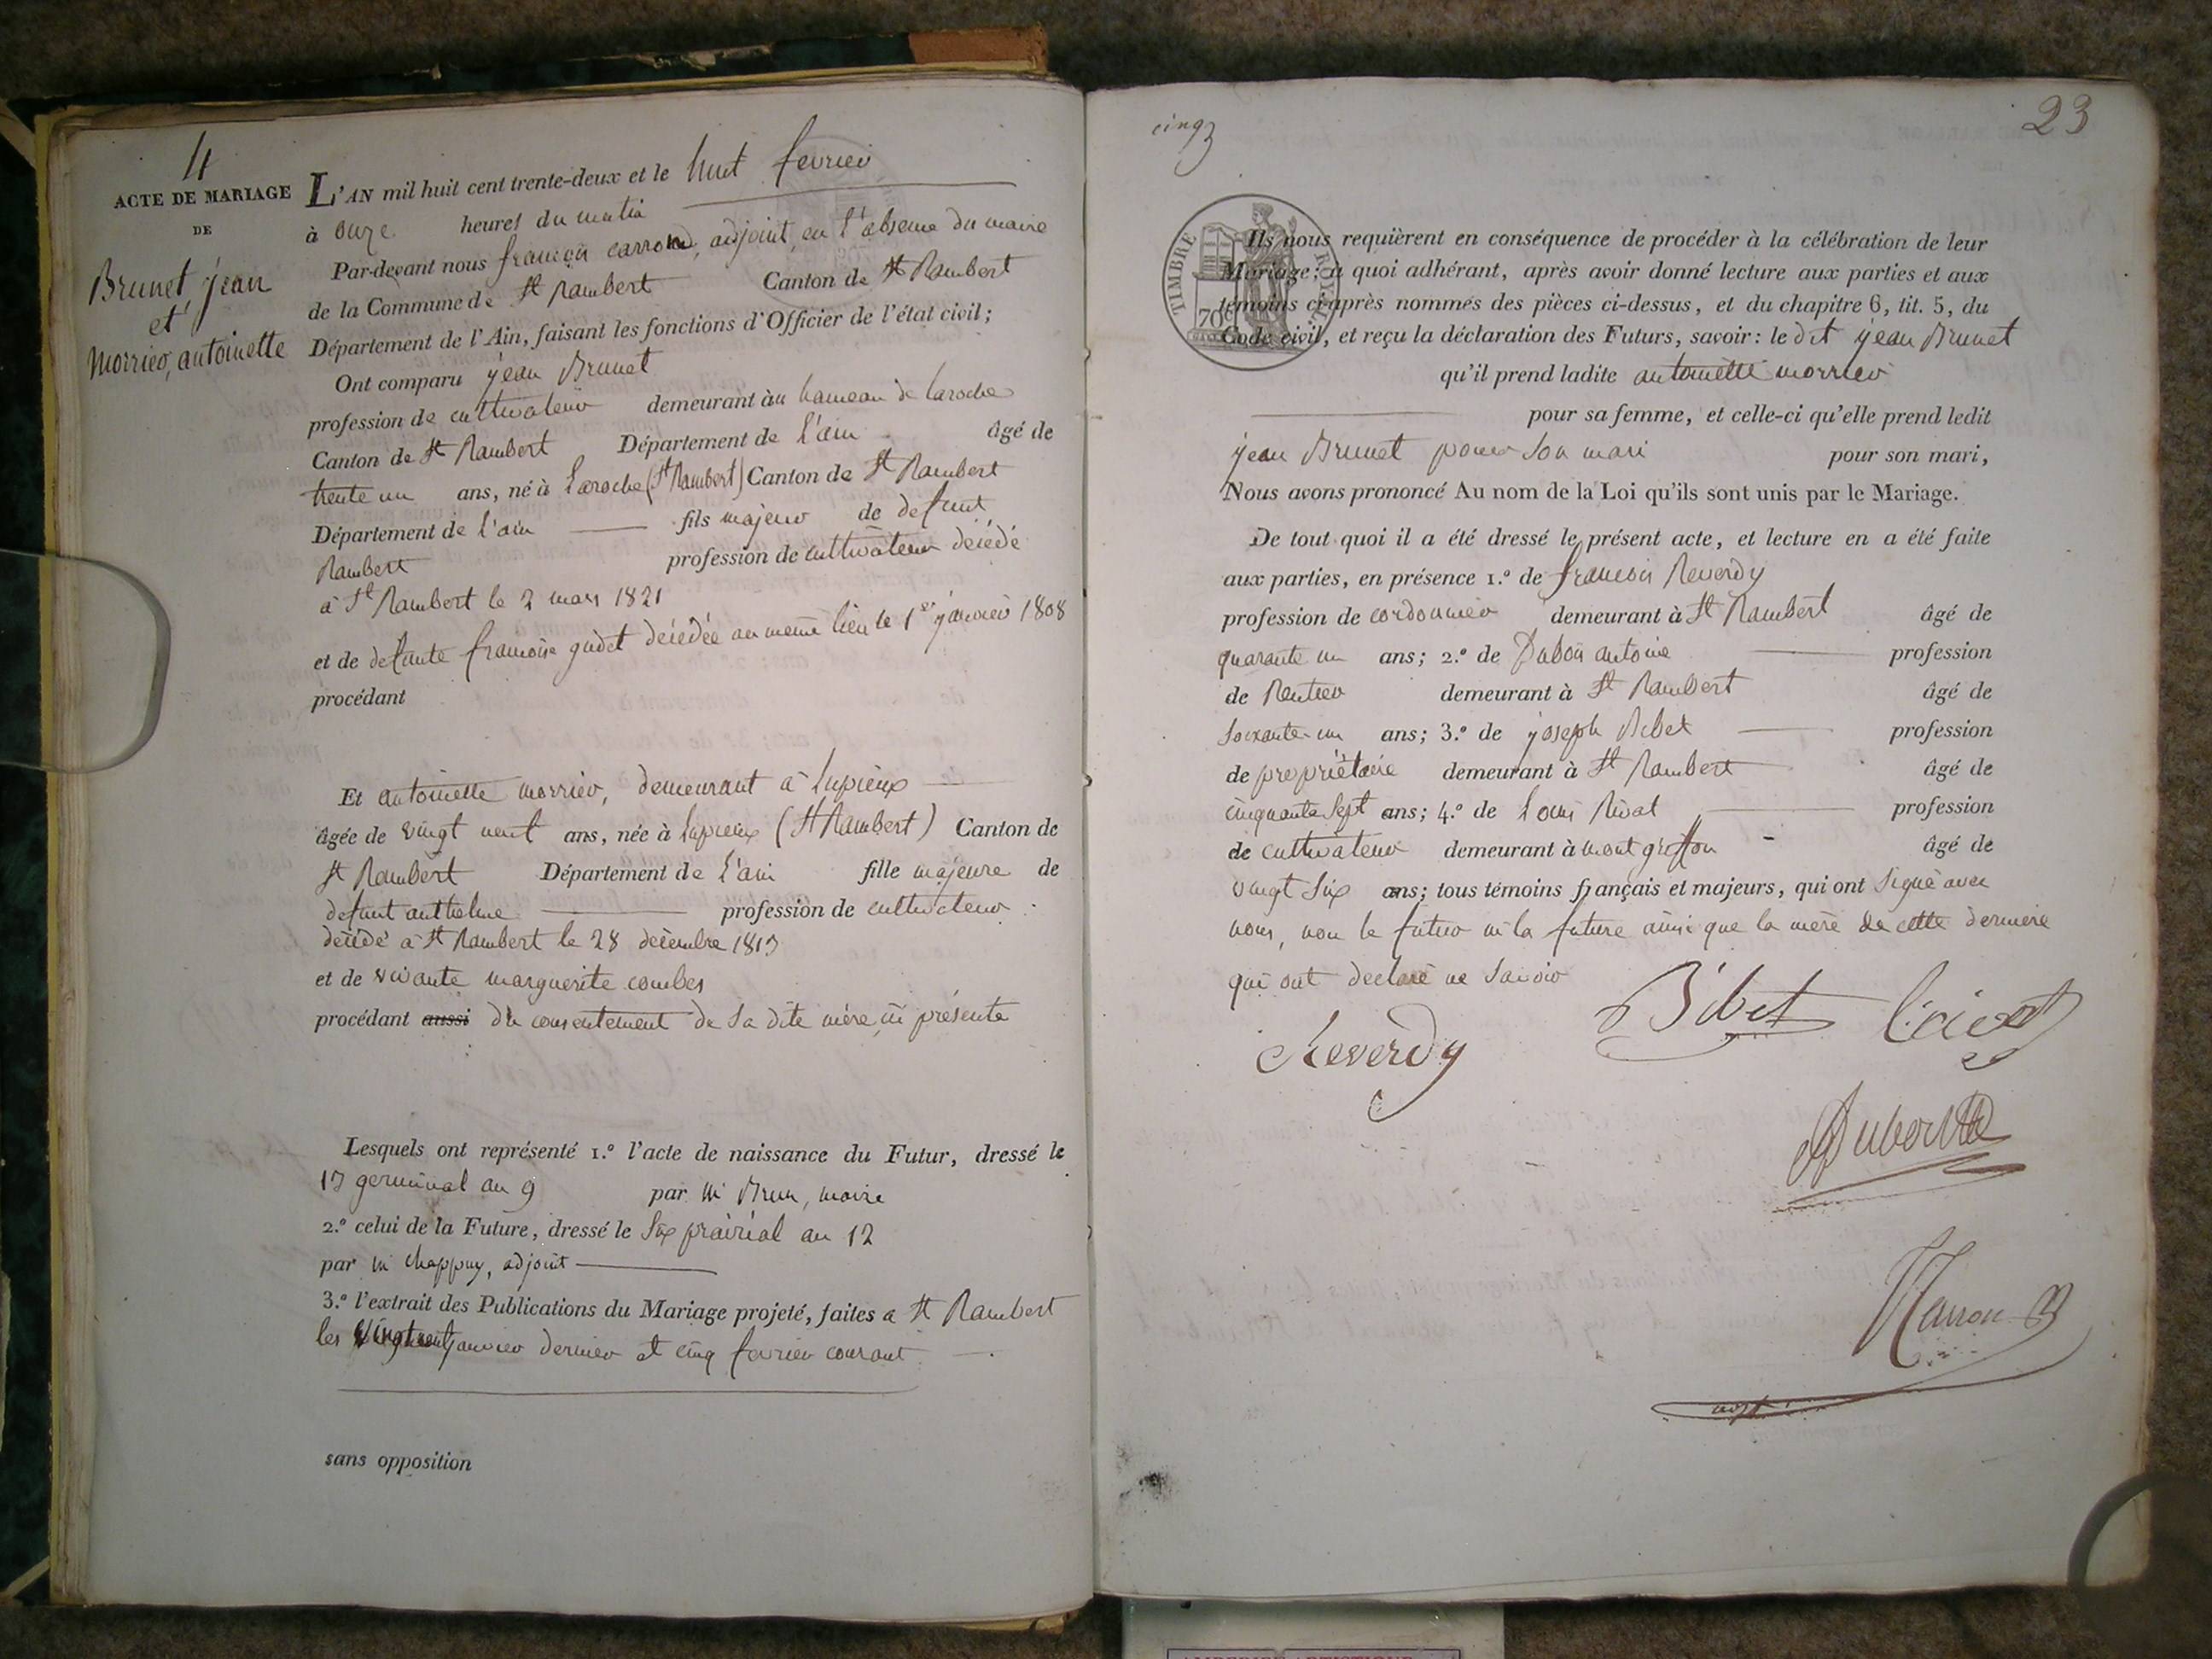 4
ACTE DE MARIAGE
DE
Brunet, jean
et
morrier, antoinette
L'AN mil huit cent trente-deux et le huit fevrier
à onze heures du matin
Par-devant nous françois carron, adjoint, en l'absence du maire
de la Commune de St Rambert Canton de St Rambert
Département de l'Ain, faisant les fonctions d'Officier de l'état civil;
Ont comparu jean Brunet
profession de cultivateur demeurant au hameau de laroche
Canton de St Rambert Département de l'ain âgé de
trente un ans, né à Laroche (St Rambert) Canton de St Rambert
Département de l'ain fils majeur de defunt
Rambert profession de cultivateur décédé
à St Rambert le 2 mars 1821
et de defunte françoise gudet décédée au même lieu le 1er janvier 1808
procédant
Et antoinette morrier, demeurant à lupieux
âgée de vingt neuf ans, née à lupieux (St Rambert) Canton de
St Rambert Département de l'ain fille majeure de
defunt anthelme profession de cultivateur
décédé à St Rambert le 28 décembre 1813
et de vivante marguerite combes
procédant aussi du consentement de sa dite mère, ici présente
Lesquels ont représenté 1.º l'acte de naissance du Futur, dressé le
13 germinal an 9 par mr Brun, maire
2.º celui de la Future, dressé le six prairial an 12
par mr chappuy, adjoint
3.º l'extrait des Publications du Mariage projeté, faites a St Rambert
les vingt neuf janvier dernier et cinq fevrier courant
sans opposition
cinq
23
TIMBRE ROYAL
70
Ils nous requièrent en conséquence de procéder à la célébration de leur
Mariage; à quoi adhérant, après avoir donné lecture aux parties et aux
témoins ci-après nommés des pièces ci-dessus, et du chapitre 6, tit. 5, du
Code civil, et reçu la déclaration des Futurs, savoir: le dit jean Brunet
qu'il prend ladite antoinette morrier
pour sa femme, et celle-ci qu'elle prend ledit
jean Brunet pour son mari pour son mari,
Nous avons prononcé Au nom de la Loi qu'ils sont unis par le Mariage.
De tout quoi il a été dressé le présent acte, et lecture en a été faite
aux parties, en présence 1.º de françois Reverdy
profession de cordonnier demeurant à St Rambert âgé de
quarante un ans; 2.º de Dubois antoine profession
de Rentier demeurant à St Rambert âgé de
soixante-un ans; 3.º de joseph Bibet profession
de propriétaire demeurant à St Rambert âgé de
cinquante sept ans; 4.º de Louis Rival profession
de cultivateur demeurant à mont griffon âgé de
vingt six ans; tous témoins français et majeurs, qui ont signé avec
nous, non le futur ni la future ainsi que la mère de cette dernière
qui ont déclaré ne savoir
Reverdy
Bibet
Dubois
Carron
adjt